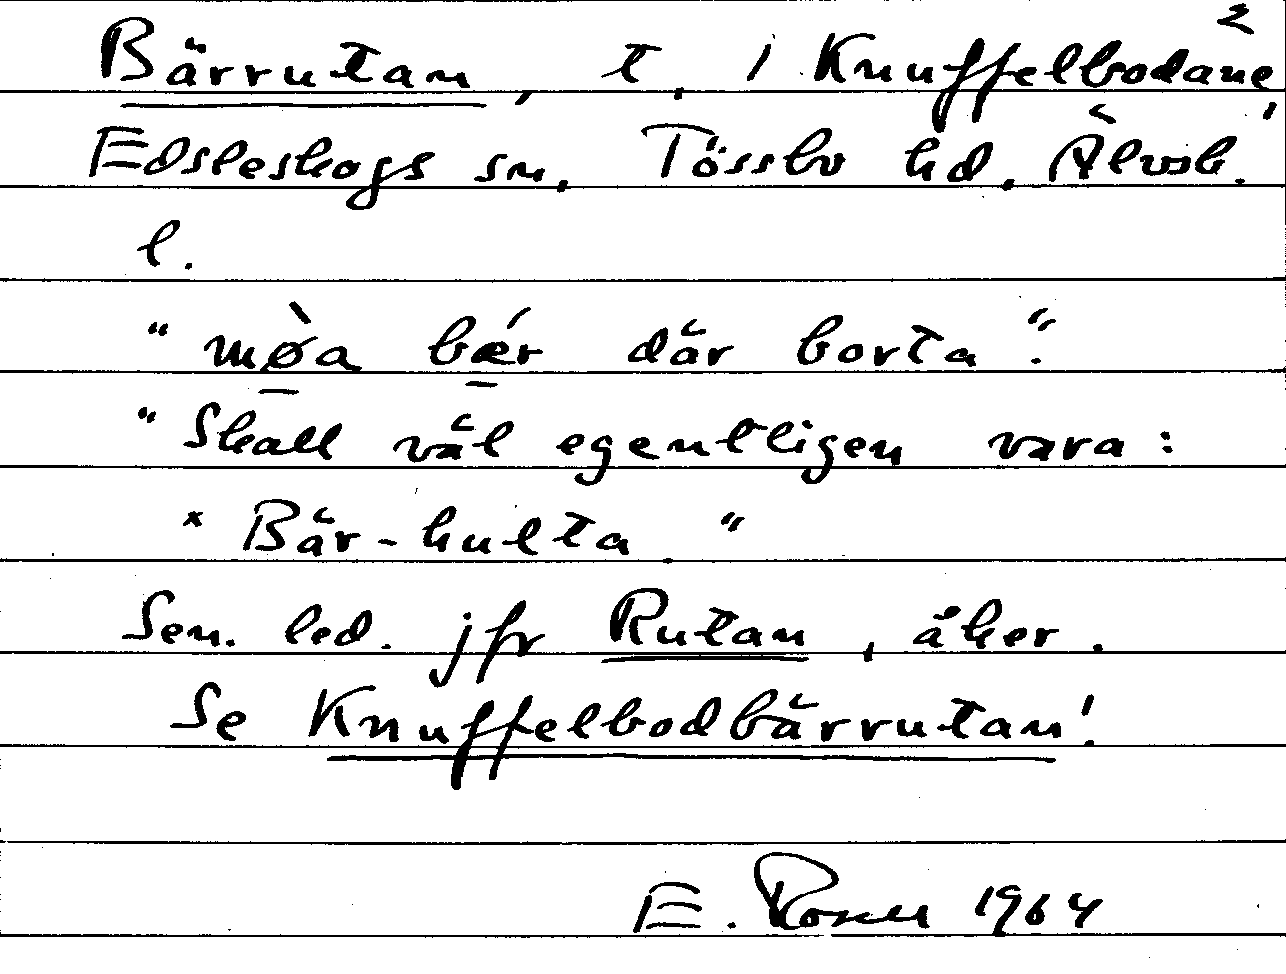 2
Bärrutan, t. i Knuffelbodane,
Edsleskogs sn. Tössbo hd. Älvsb.
l.
"mø̱̀a bǽ̱r där borta".
"Skall väl egentligen vara:
* Bär-hulta."
Sen. led. jfr Rutan, åker.
Se Knuffelbodbärrutan!
E. Rosell 1964